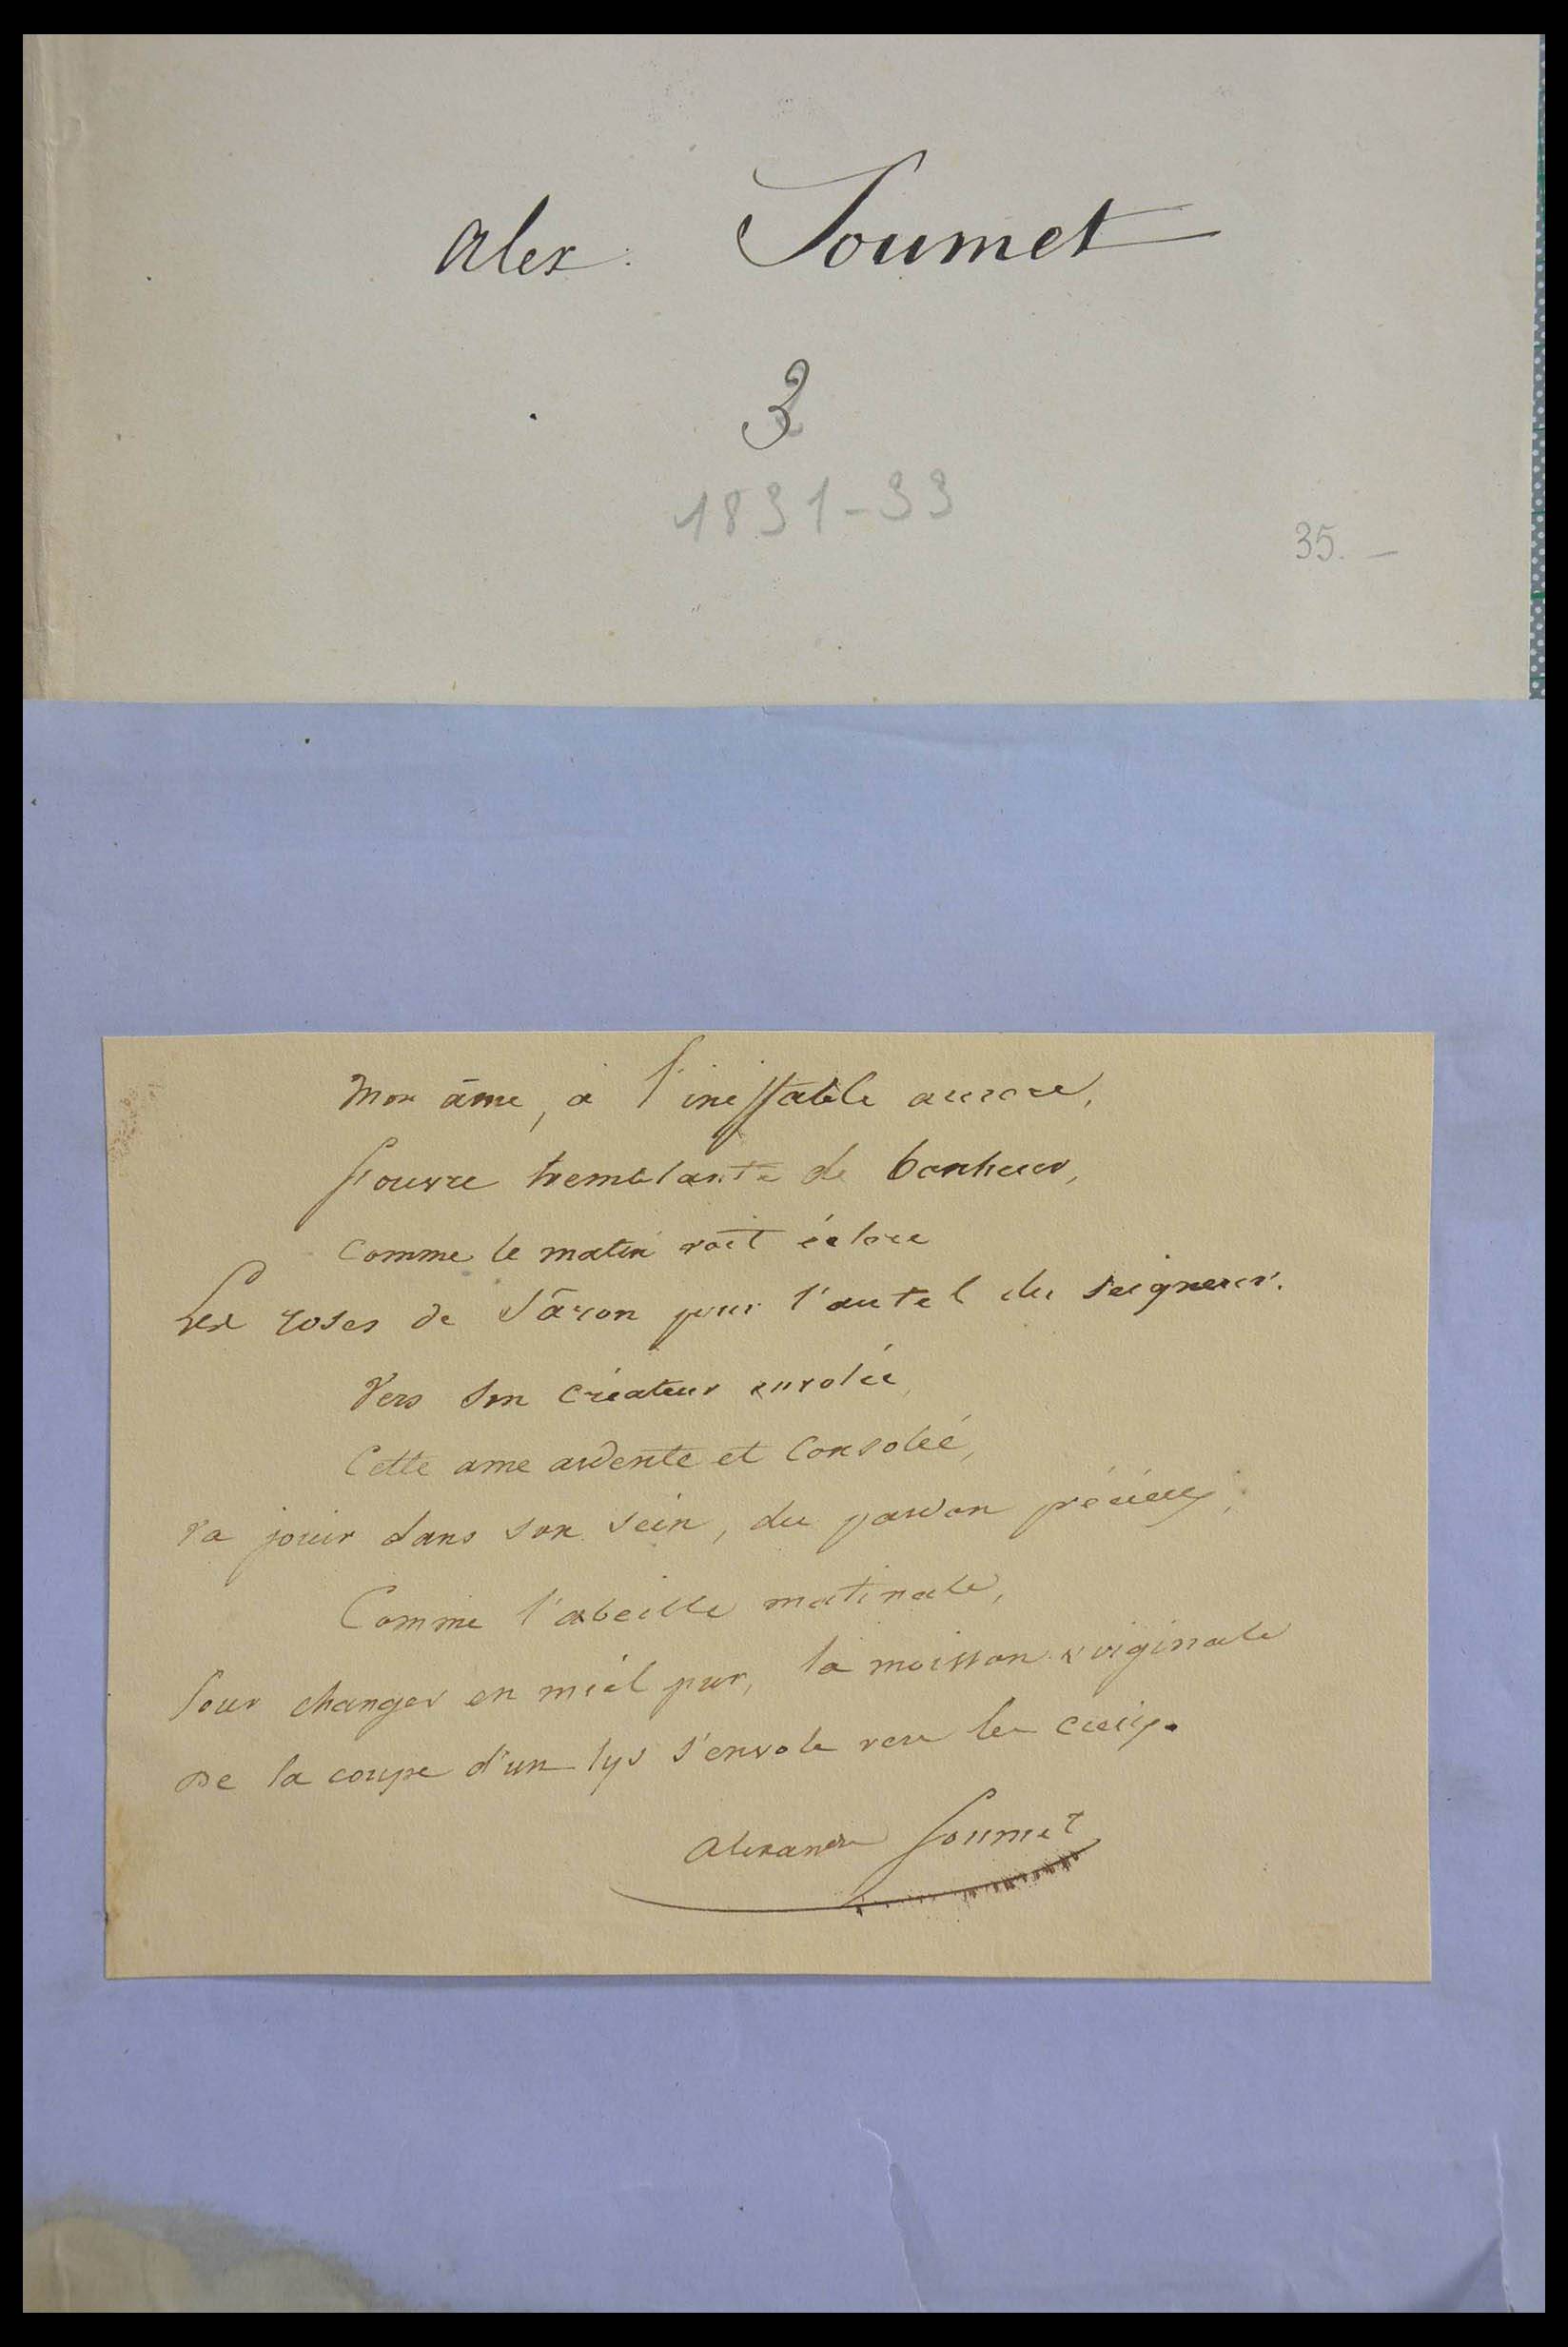 Alex. Soumet
3
1831-33
35. —
Mon âme, à l'ineffable aurore,
s'ouvre tremblante de bonheur,
comme le matin voit éclore
Les roses de Sâron pour l'autel du seigneur.
Vers son créateur envolée,
Cette ame ardente et consolée,
va jouir dans son sein, du pardon précieux,
Comme l'abeille matinale,
Pour changer en miel pur, la moisson virginale
De la coupe d'un lys s'envole vers les cieux.
Alexandre Soumet